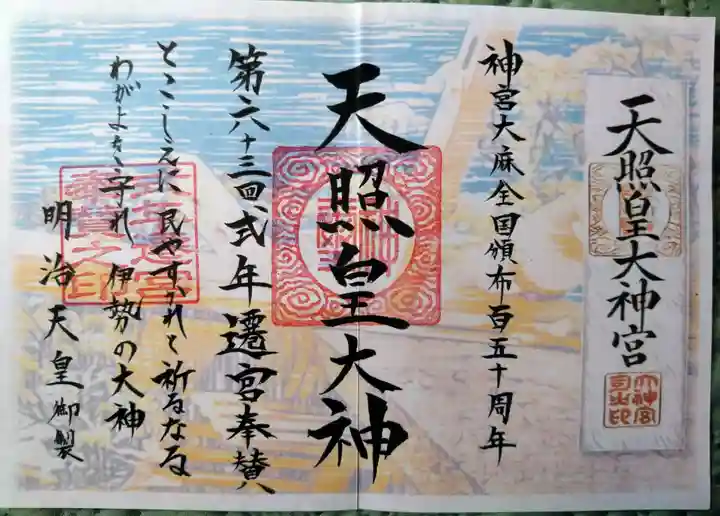 天照皇大神宮
大神宮司之印
神宮大麻全国頒布百五十周年
天照皇大神
第六十三回式年遷宮奉賛
式年遷宮奉賛之印
とこしえに民やすかれと祈るなる
わがよを守れ伊勢の大神
明治天皇御製